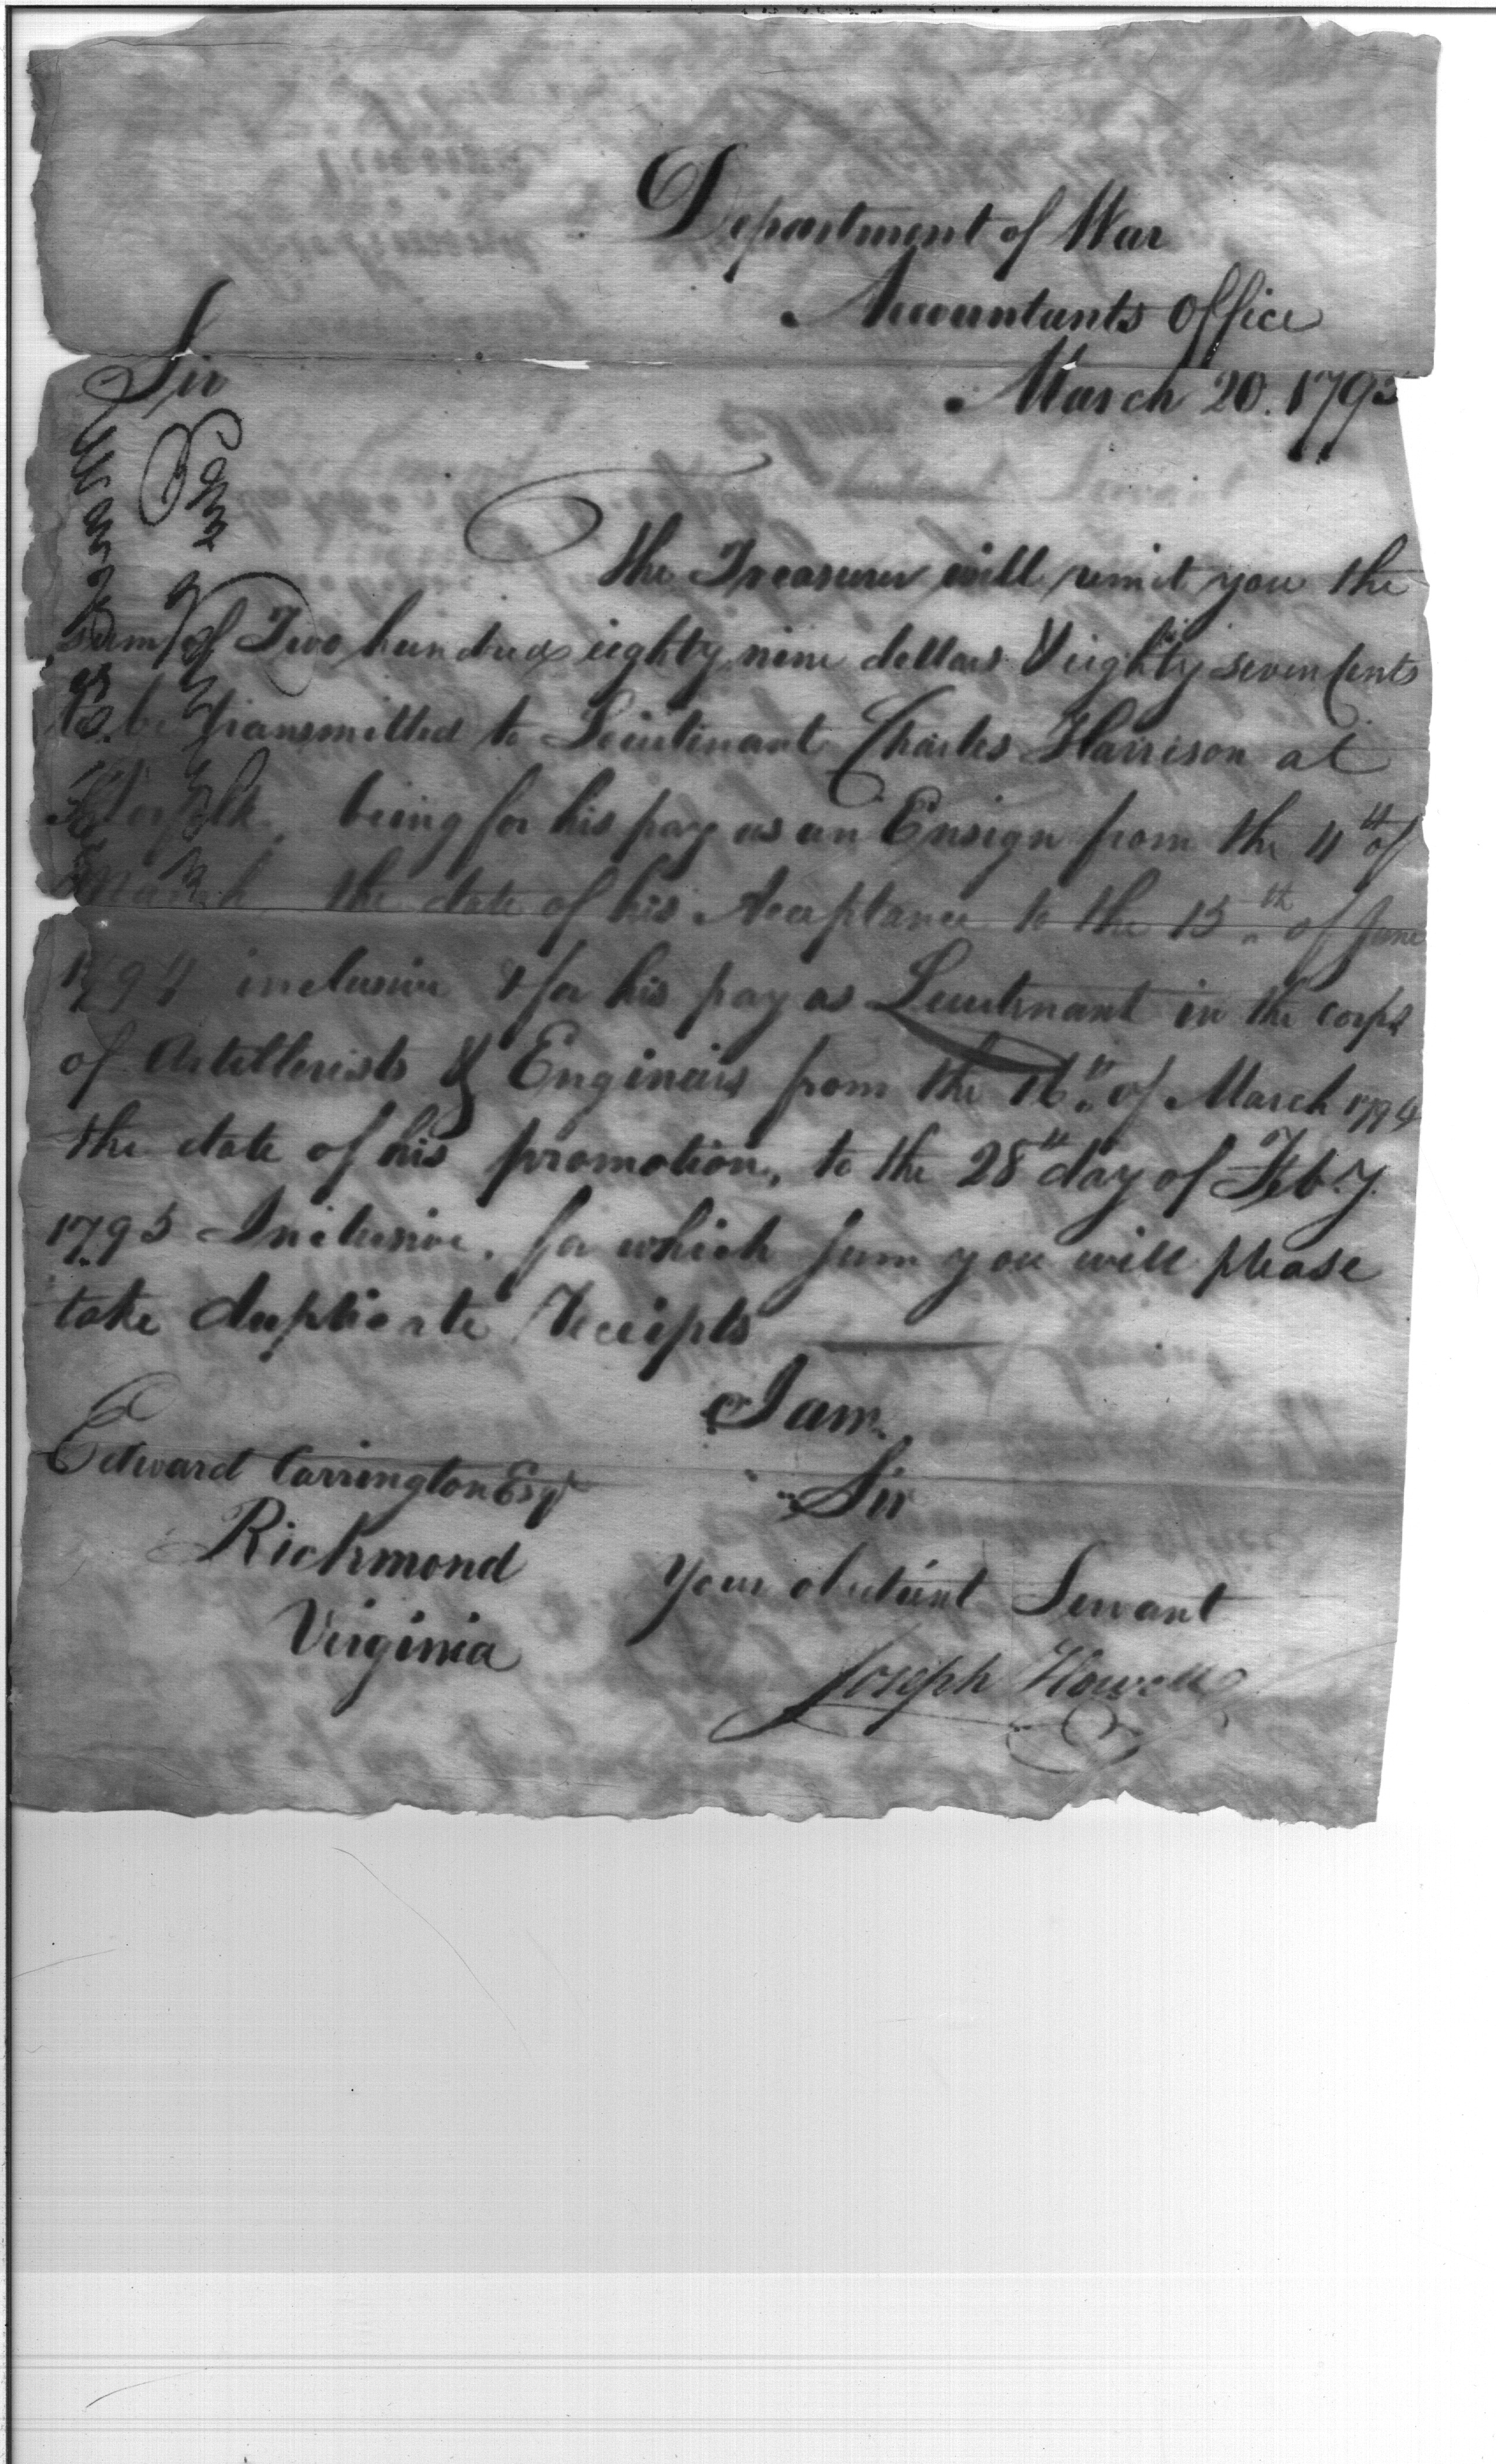 Department of War
Accountants Office
March 20. 1795
Sir
The Treasurer will remit you the
Sum of Two hundred eighty nine dollars & eighty seven Cents
to be transmitted to Lieutenant Charles Harrison at
Norfolk, being for his pay as an Ensign from the 11th of
March the date of his Acceptance to the 15th of June
1794 inclusive & for his pay as Lieutenant in the corps
of Artillerists & Engineers from the 16th of March 1794
the date of his promotion, to the 28th day of Feby.
1795 Inclusive. for which sum you will please
take duplicate Receipts
I am
Sir
Your obedient Servant
Joseph Howell
Edward Carrington Esqr
Richmond
Virginia